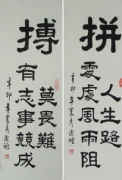 拼
人生路
處風雨阻
辛卯
搏
莫畏難
有志事競成
辛卯